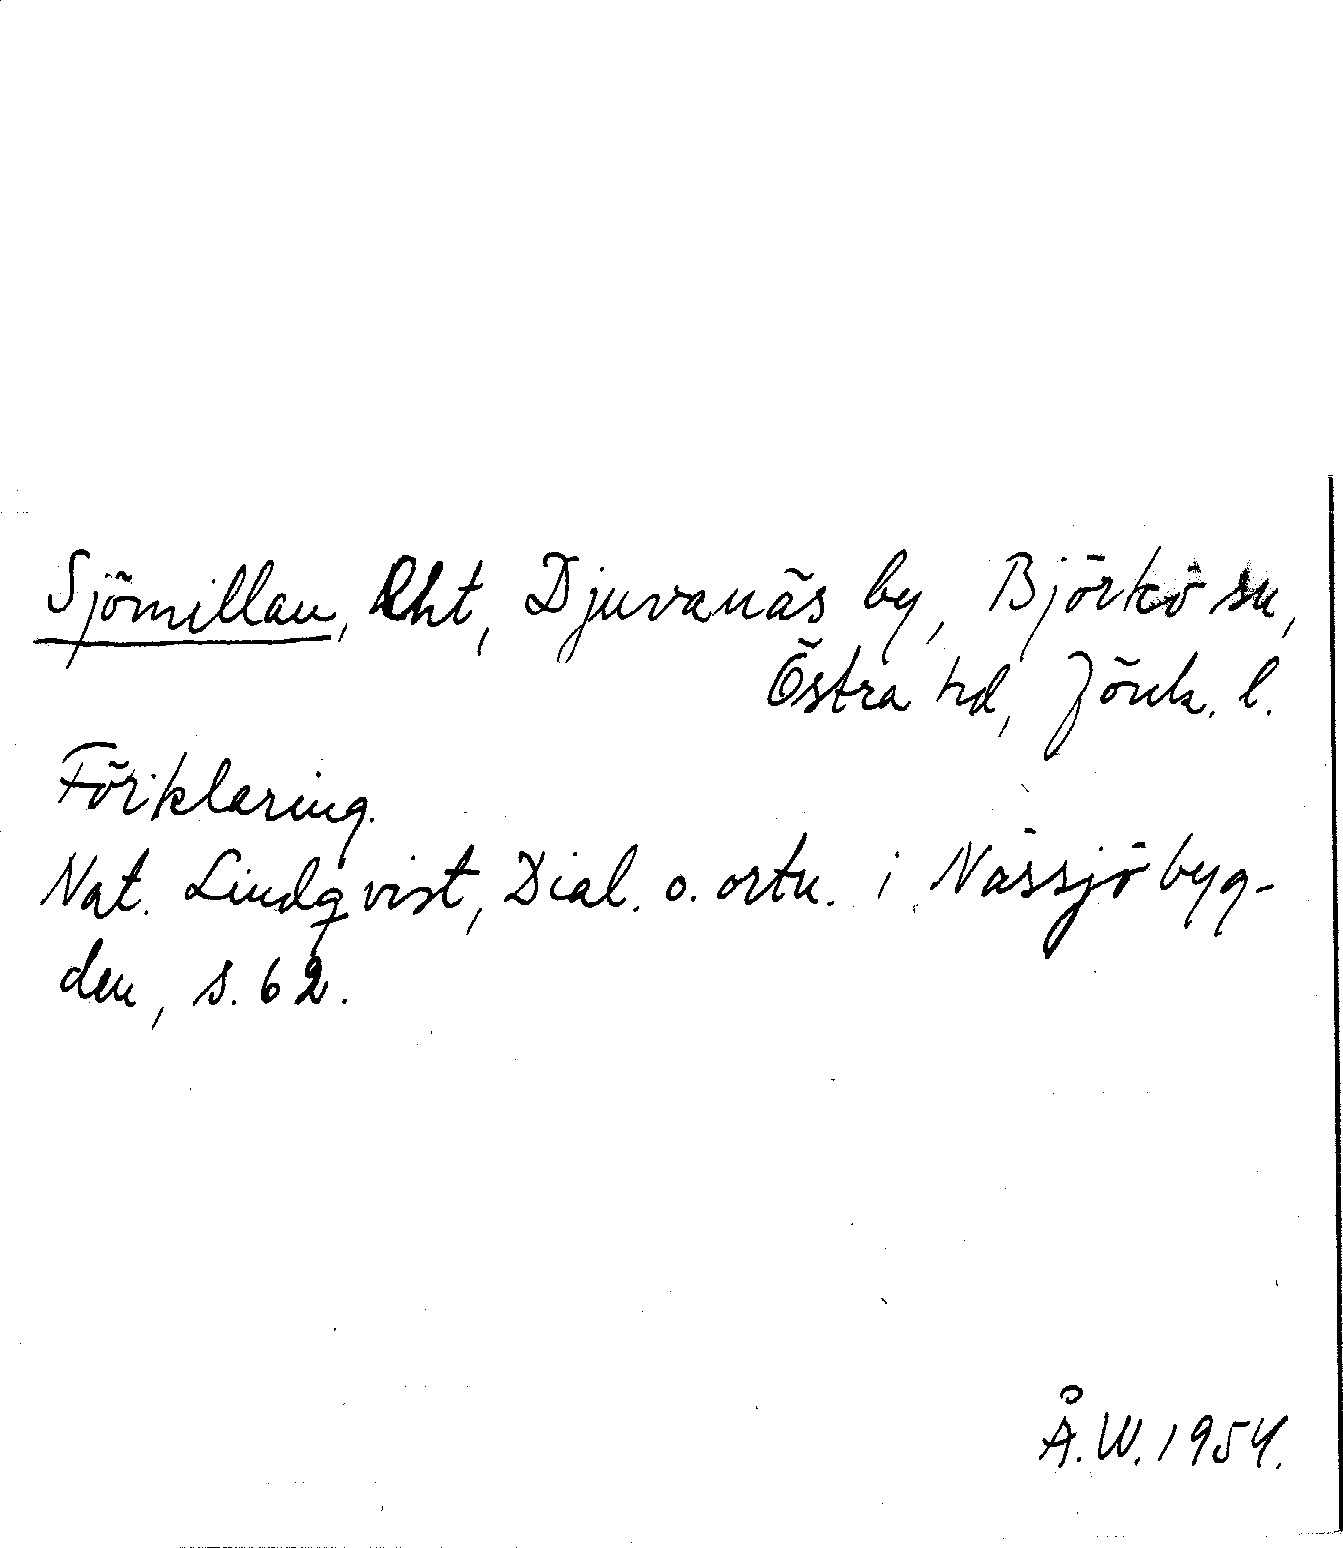 Sjömillan, Lht, Djuvanäs by, Björkö sn,
Östra hd, Jönk. l.
Förklaring.
Nat. Lindqvist, Dial. o. ortn. i Nässjöbyg-
den, s. 62.
Å.W. 1954.